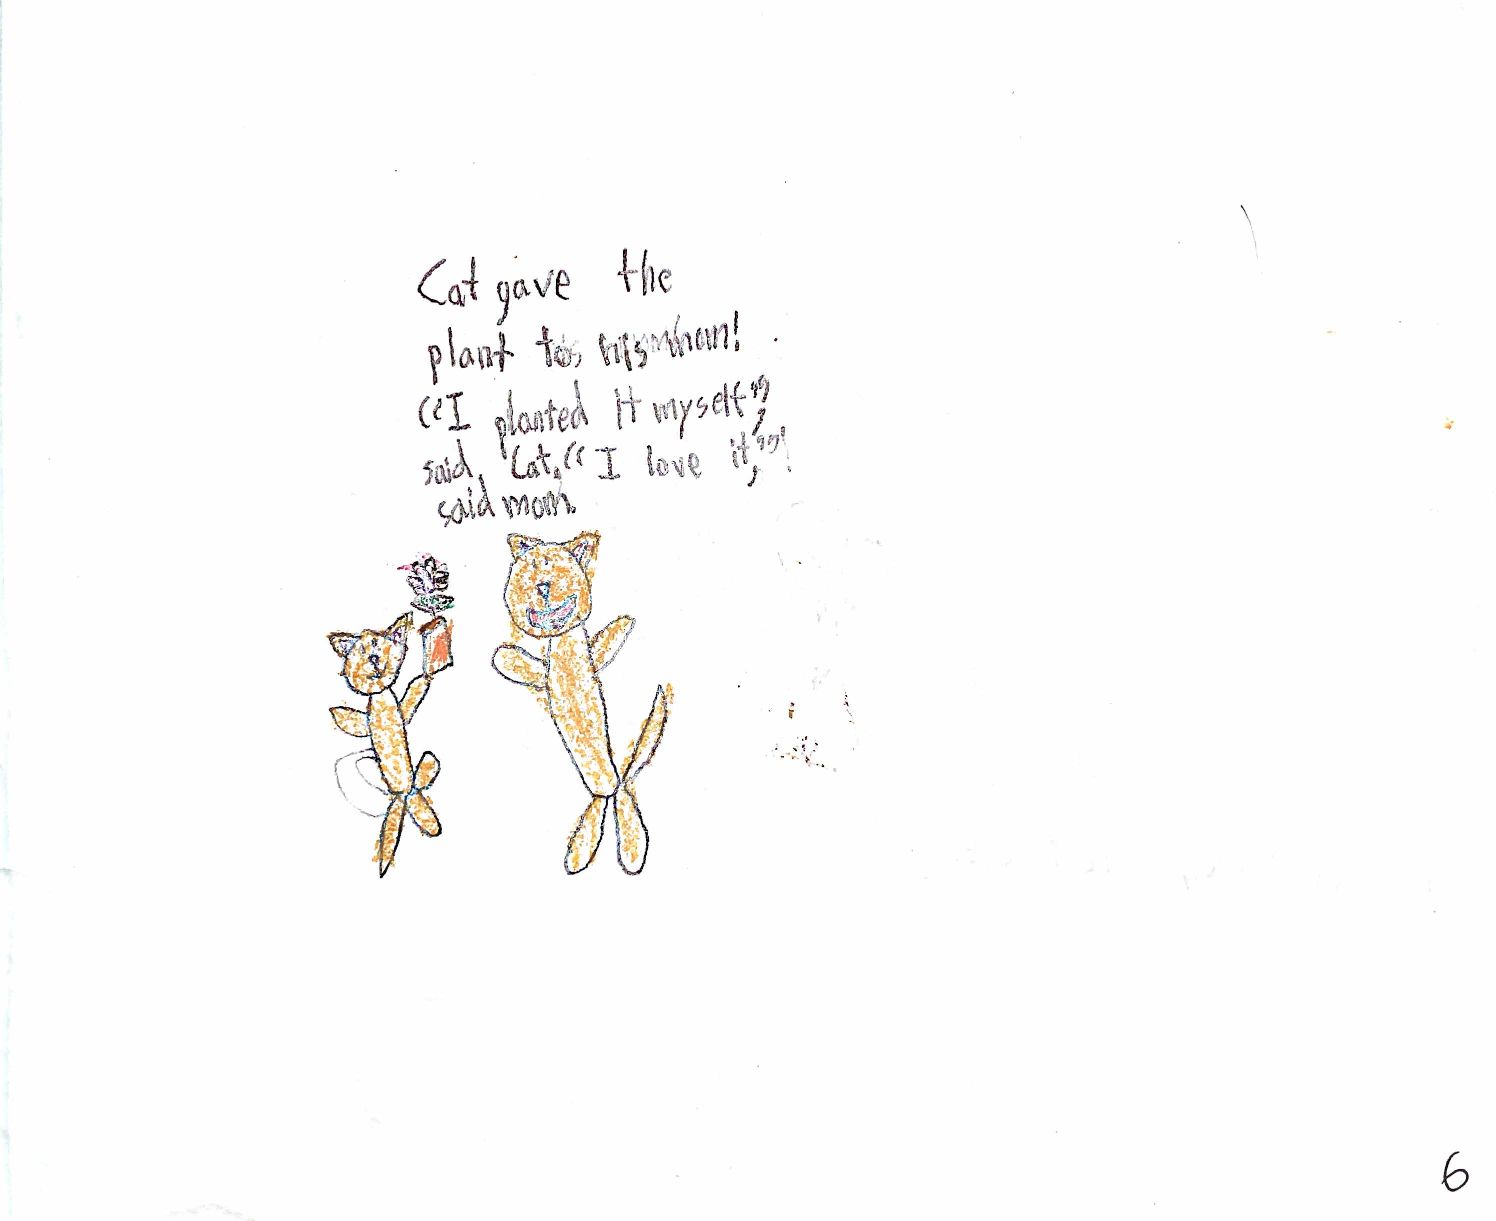 Cat gave the
plant to his mom!
“I planted It myself”,
said, Cat, “I love it,”!
said mom.
6